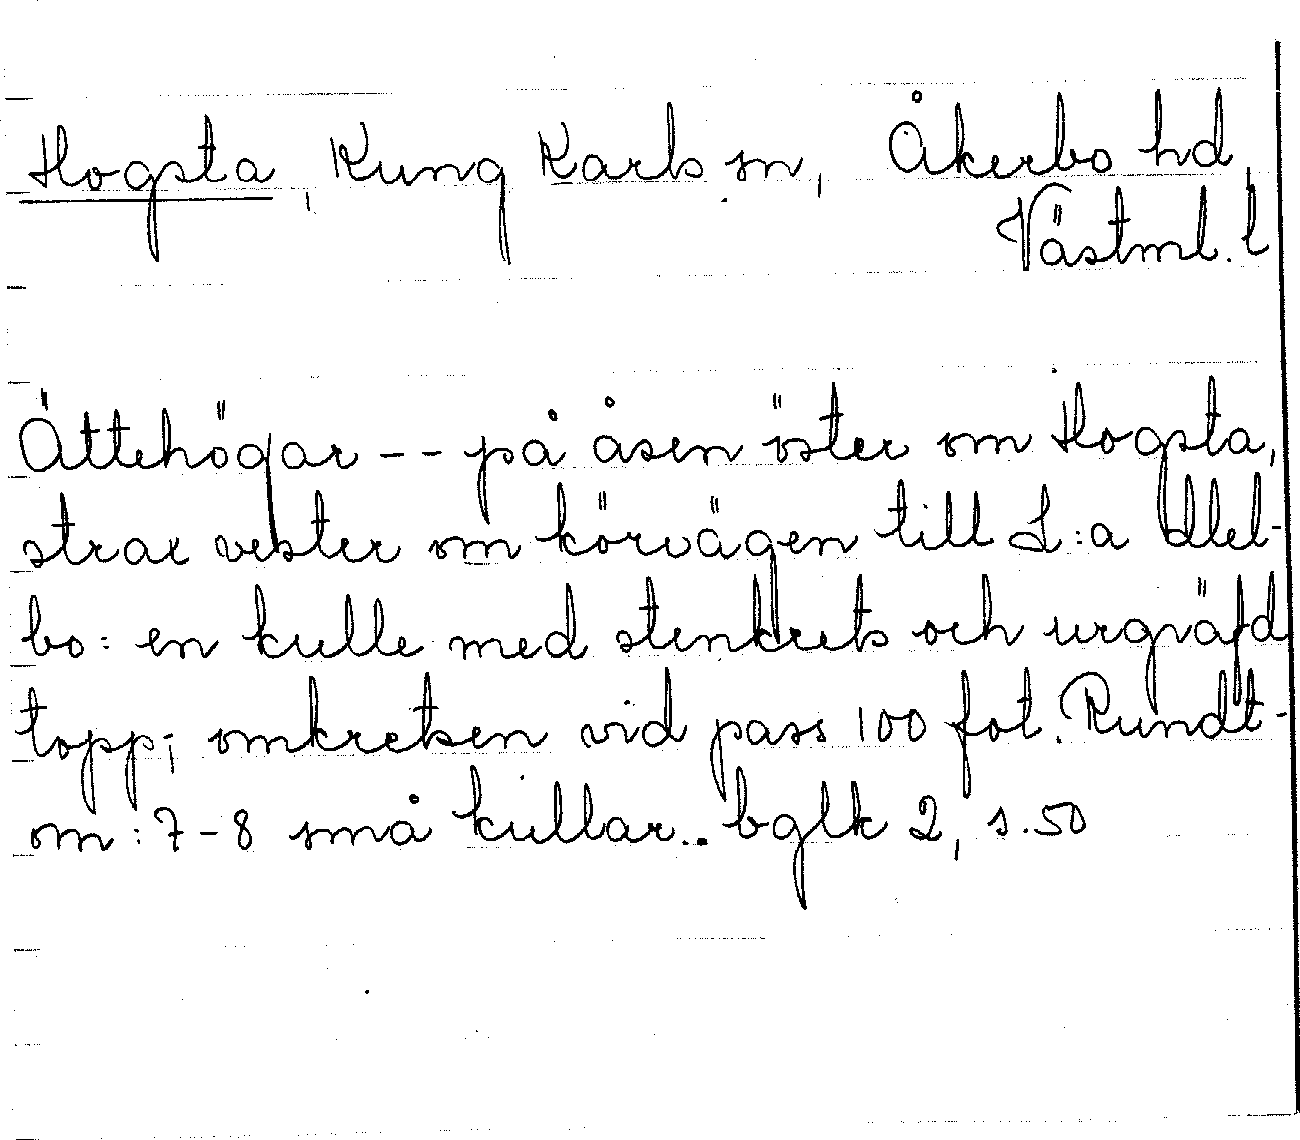 Hogsta, Kung Karls sn, Åkerbo hd,
Västml. l
Ättehögar -- på åsen öster om Hogsta,
strax vester om körvägen till L:a Ellel-
bo: en kulle med stenkrets och urgräfd
topp; omkretsen vid pass 100 fot. Rundt-
om: 7-8 små kullar.. bglk 2, s. 50